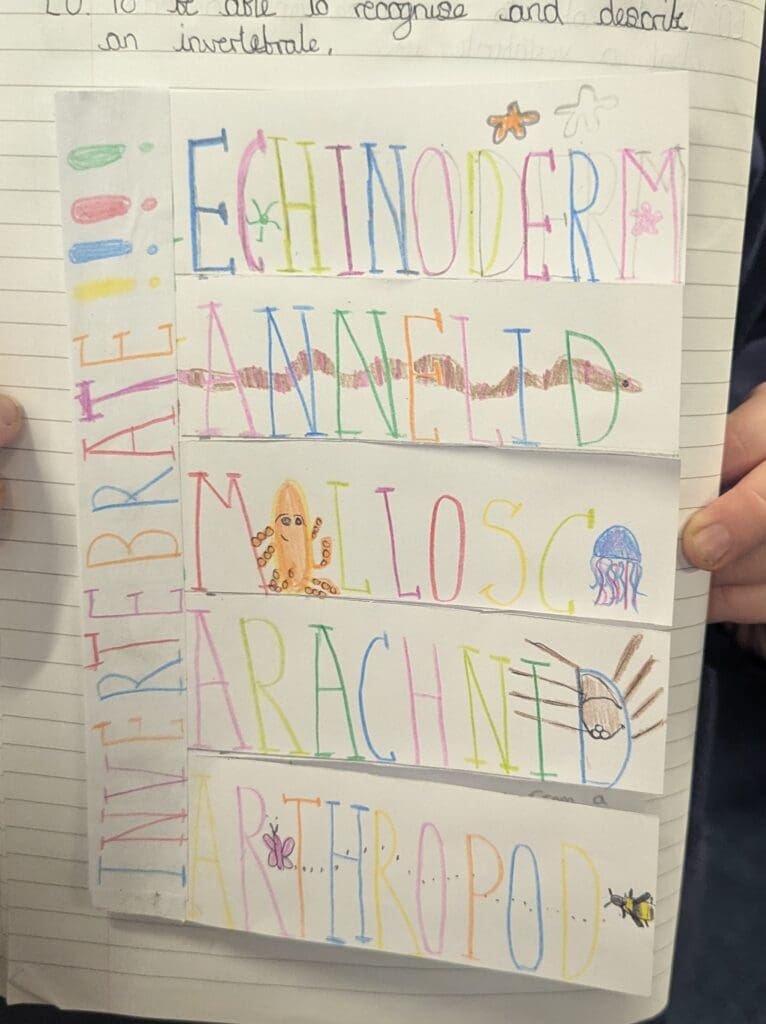 LO To be able to recognise and describe
an invertebrate.
INVERTEBRATE!!!!
ECHINODERM
ANNELID
M LLOSC
ARACHNID
ARTHROPOD